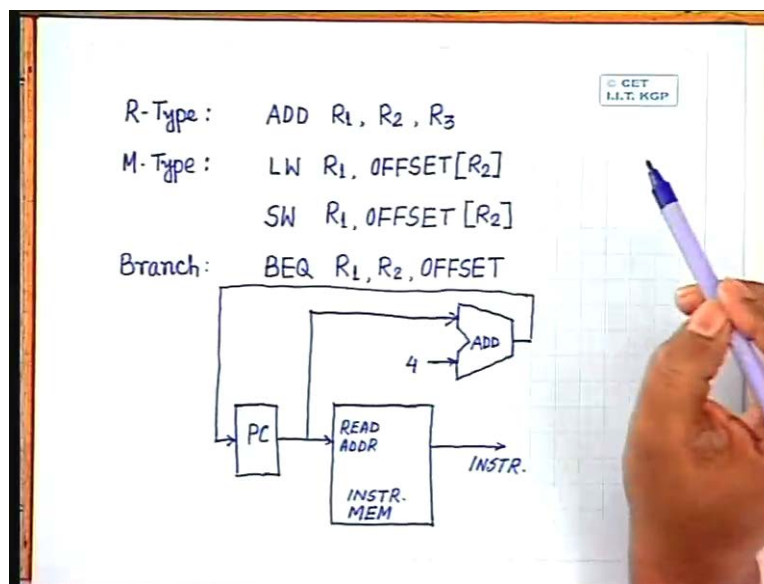 © CET
I.I.T. KGP
R-Type: ADD R1, R2, R3
M-Type: LW R1, OFFSET[R2]
SW R1, OFFSET[R2]
Branch: BEQ R1, R2, OFFSET
ADD
4
PC
READ
ADDR
INSTR.
INSTR.
MEM